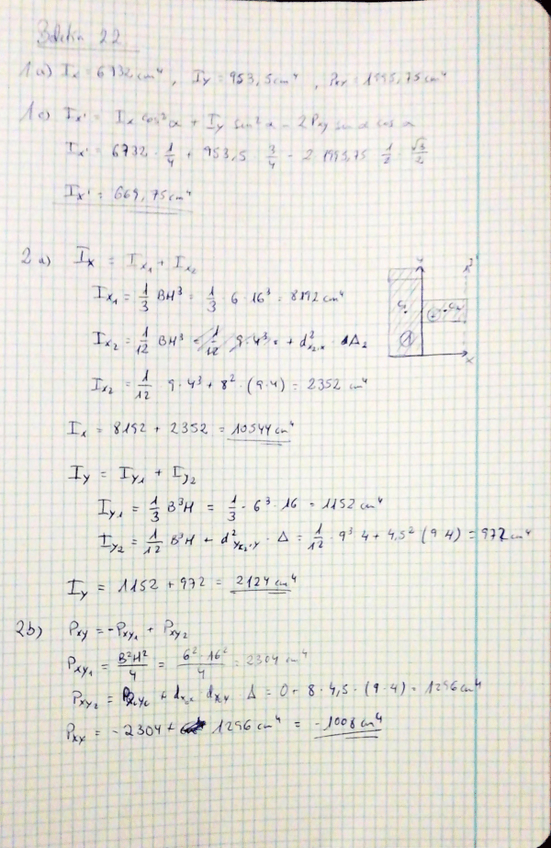 22
1a) Ix = 6732 cm⁴, Iy = 953,5 cm⁴, Pxy = 1995,75 cm⁴
1c) Ix' = Ix cos²α + Iy sin²α - 2Pxy sin α cos α
Ix' = 6732 · 1/4 + 953,5 · 3/4 - 2 · 1995,75 · 1/2 · √3/2
Ix' = 669,75 cm⁴
2a) Ix = Ix₁ + Ix₂
Ix₁ = 1/3 BH³ = 1/3 · 6 · 16³ = 8192 cm⁴
Ix₂ = 1/12 BH³ + d²x₂,x · A₂
Ix₂ = 1/12 · 9 · 4³ + 8² · (9 · 4) = 2352 cm⁴
Ix = 8192 + 2352 = 10544 cm⁴
Iy = Iy₁ + Iy₂
Iy₁ = 1/3 B³H = 1/3 · 6³ · 16 = 1152 cm⁴
Iy₂ = 1/12 B³H + d² · A = 1/12 · 9³ · 4 + 4,5² (9 · 4) = 972 cm⁴
Iy = 1152 + 972 = 2124 cm⁴
2b) Pxy = -Pxy₁ + Pxy₂
Pxy₁ = B²H²/4 = 6² · 16²/4 = 2304 cm⁴
Pxy₂ = + · A = 0 + 8 · 4,5 · (9 · 4) = 1296 cm⁴
Pxy = -2304 + 1296 cm⁴ = -1008 cm⁴